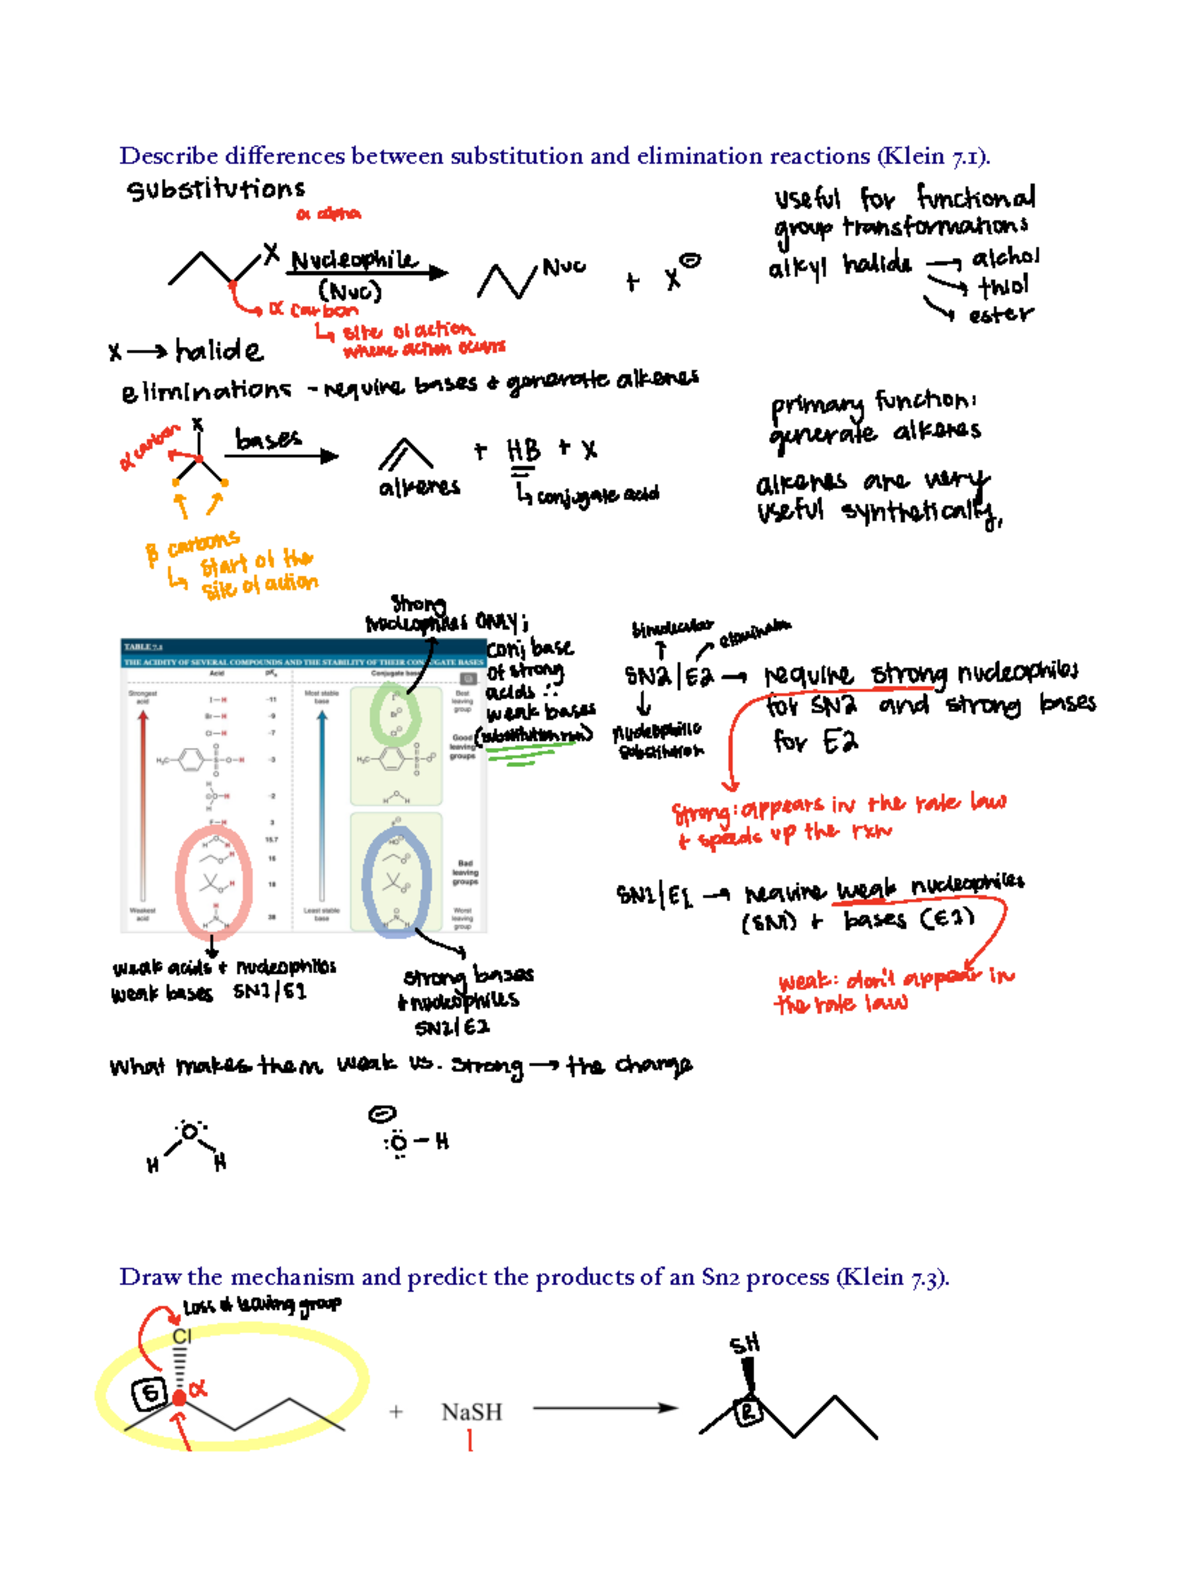 Describe differences between substitution and elimination reactions (Klein 7.1).
substitutions
α alpha
X Nucleophile
(Nuc)
Nuc
+ X⊖
α carbon
↳ site of action
where action occurs
useful for functional
group transformations
alkyl halide → alchol
→ thiol
→ ester
X → halide
eliminations - require bases & generate alkenes
X
α carbon
bases
alkenes
+ HB + X
↳ conjugate acid
β carbons
↳ start of the
site of action
primary function:
generate alkenes
alkenes are very
useful synthetically,
strong
nucleophiles ONLY;
conj base
of strong
acids ∴
weak bases
(substitution rxn)
TABLE 7.1
THE ACIDITY OF SEVERAL COMPOUNDS AND THE STABILITY OF THEIR CONJUGATE BASES
Acid pKa Conjugate base
Strongest
acid
Most stable
base
Best
leaving
group
I—H -11
Br—H -9
Cl—H -7
Good
leaving
groups
H₃C -3
-2
F—H 3
15.7
16
18
38
Bad
leaving
groups
Weakest
acid
Least stable
base
Worst
leaving
group
bimolecular
elimination
SN2/E2 → require strong nucleophiles
for SN2 and strong bases
for E2
Nucleophilic
substitution
strong: appears in the rate law
+ speeds up the rxn
SN1/E1 → require weak nucleophiles
(SN1) + bases (E1)
weak: don't appear in
the rate law
weak acids + nucleophiles
weak bases SN1/E1
strong bases
+ nucleophiles
SN2/E2
What makes them weak vs. strong → the charge
H O H
⊖
:O - H
Draw the mechanism and predict the products of an Sn2 process (Klein 7.3).
Loss of leaving group
Cl
S α
+ NaSH
SH
R